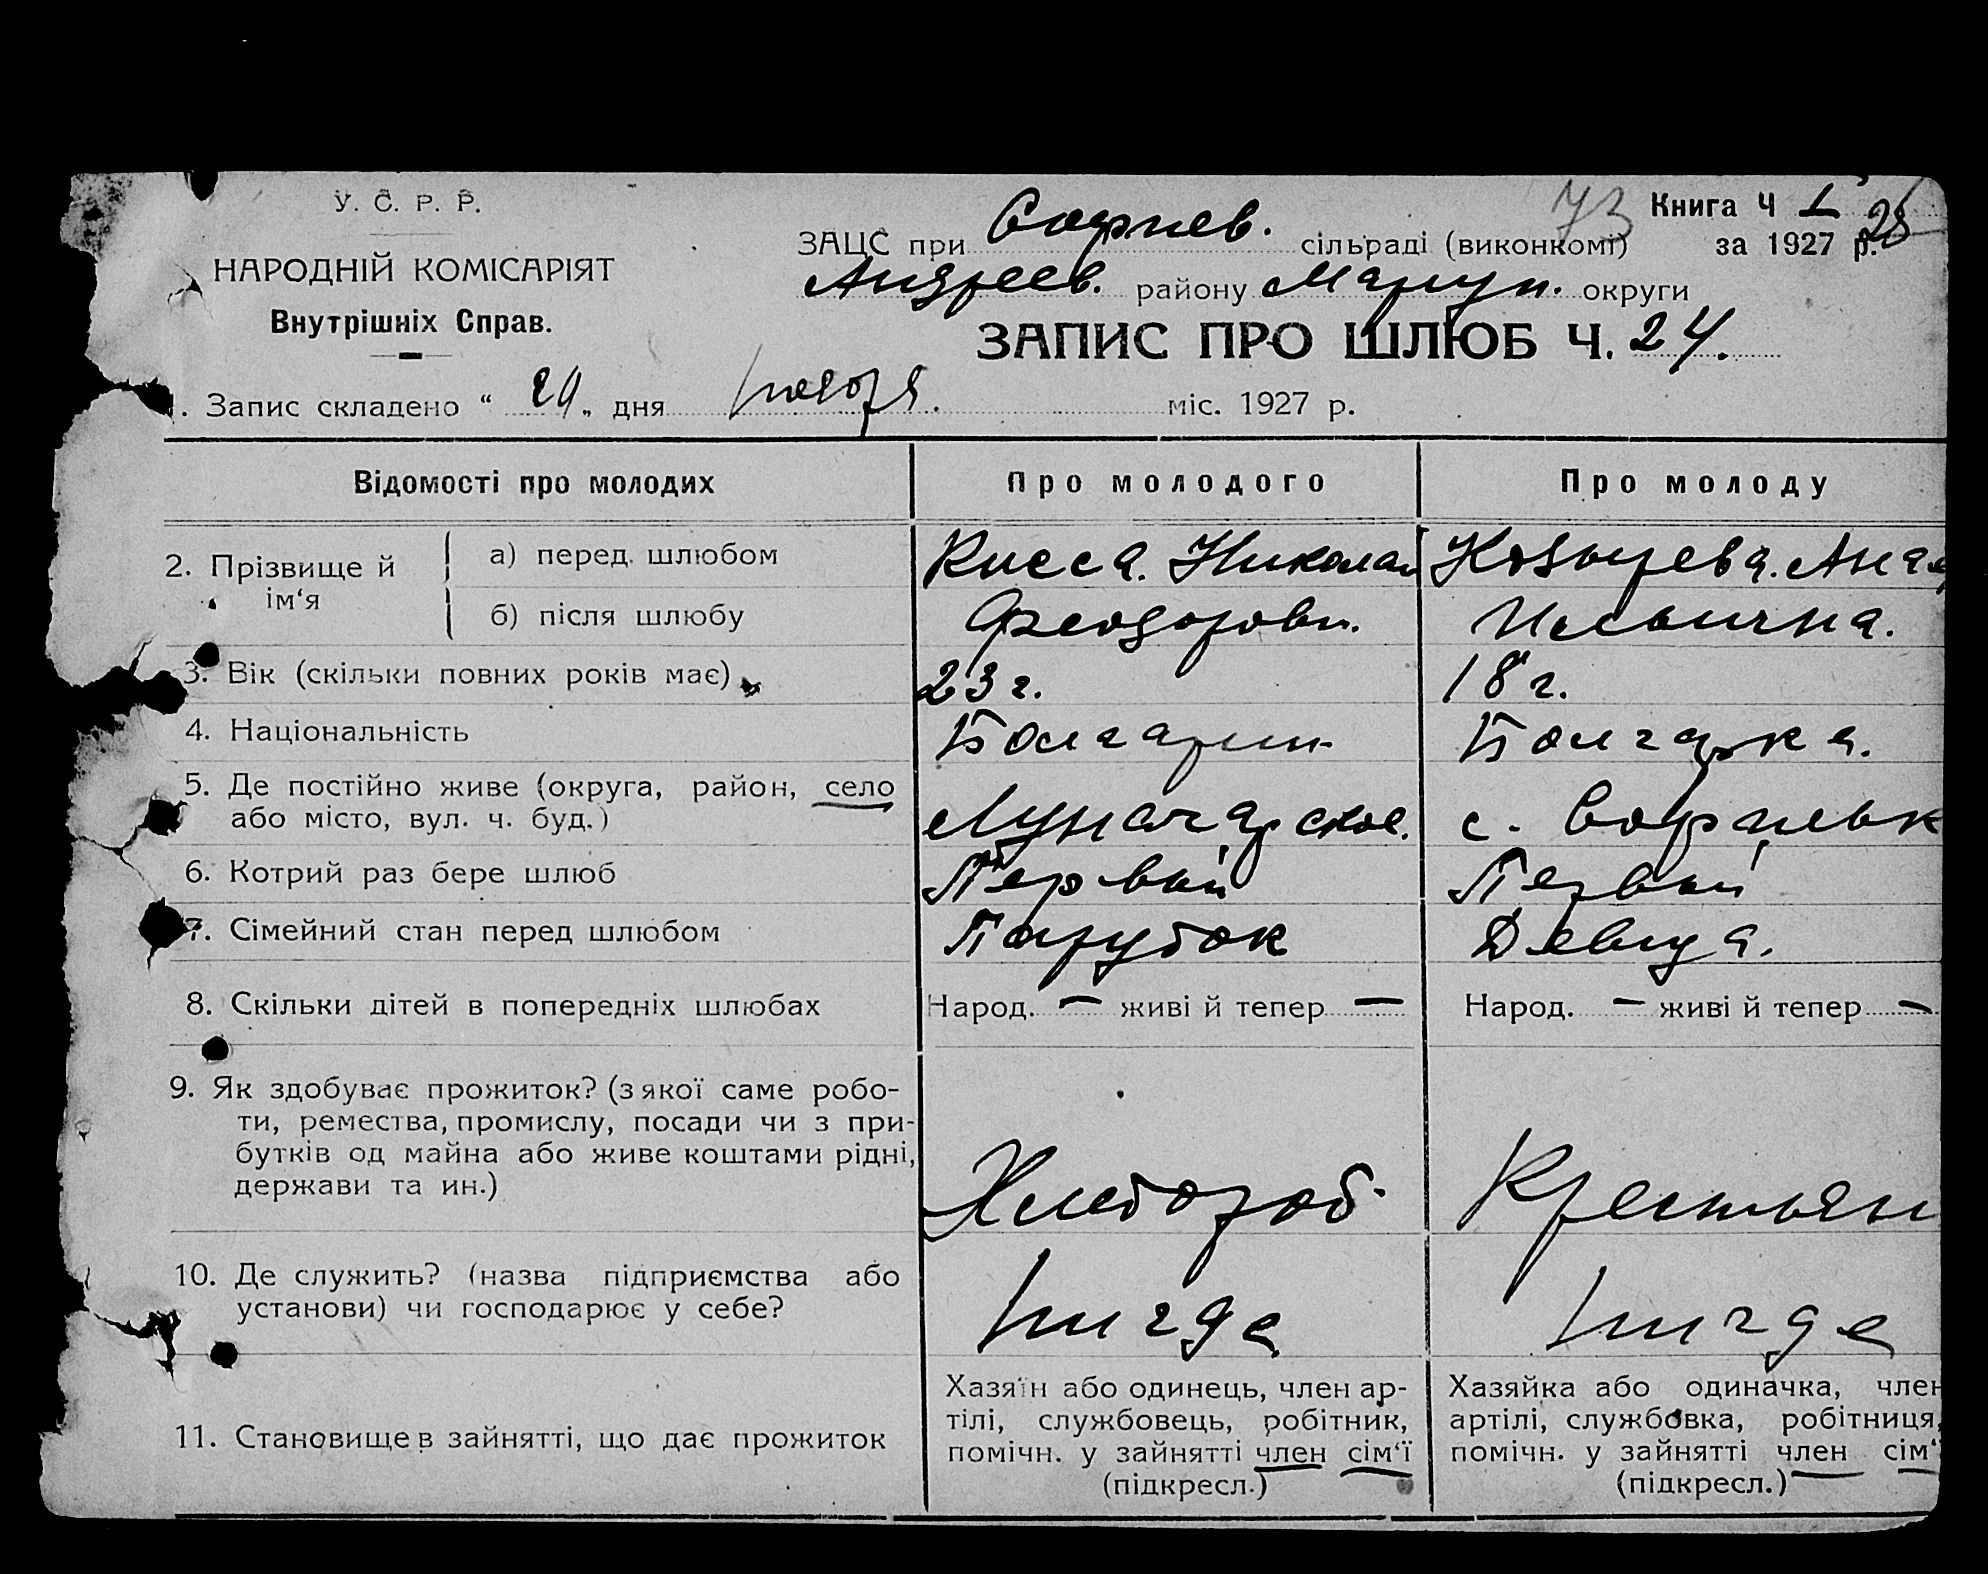 У. С. Р. Р.
НАРОДНІЙ КОМІСАРІЯТ
Внутрішніх Справ.
73
Книга Ч I
за 1927 р. 25
ЗАЦС при Софиев. сільраді (виконкомі)
Андреев. району Мариуп. округи
ЗАПИС ПРО ШЛЮБ Ч. 24.
1. Запис складено “ 29 „ дня ноября. міс. 1927 р.
Відомості про молодих Про молодого Про молоду
2. Прізвище й ім‘я
а) перед шлюбом Кисса. Николай
б) після шлюбу Феодорови. Ильична.
3. Вік (скільки повних років має) 23 г. 18 г.
4. Національність Болгарин Болгарка.
5. Де постійно живе (округа, район, село
або місто, вул. ч. буд.) Луначарское. с. Софиевк
6. Котрий раз бере шлюб Первый Первый
7. Сімейний стан перед шлюбом Парубок Девица.
8. Скільки дітей в попередніх шлюбах Народ. — живі й тепер — Народ. — живі й тепер —
9. Як здобуває прожиток? (з якої саме робо-
ти, ремества, промислу, посади чи з при-
бутків од майна або живе коштами рідні,
держави та ин.) Хлебороб. Крестьян
10. Де служить? (назва підприємства або
установи) чи господарює у себе? нигде нигде
11. Становище в зайнятті, що дає прожиток
Хазяїн або одинець, член ар-
тілі, службовець, робітник,
помічн. у зайнятті член сім‘ї
(підкресл.)
Хазяйка або одиначка, член
артілі, службовка, робітниця,
помічн. у зайнятті член сім‘
(підкресл.)